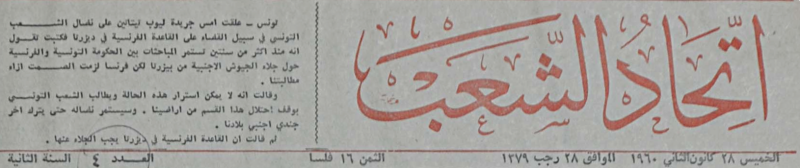 اتحاد الشعب
الخميس ٢٨ كانون الثاني ١٩٦٠ الموافق ٢٨ رجب ١٣٧٩ الثمن ١٦ فلسا العدد ٤ السنة الثانية
تونس ـ علقت امس جريدة ليوب ليتانين على نضال الشعب
التونسي في سبيل القضاء على القاعدة الفرنسية في ديزرنا فكتبت تقول
انه منذ اكثر من سنتين تستمر المباحثات بين الحكومة التونسية والفرنسية
حول جلاء الجيوش الاجنبية من بيزرنا لكن فرنسا لزمت الصمت ازاء
مطالبتنا .
وقالت انه لا يمكن استرار هذه الحالة ويطالب الشعب التونسي
بوقف احتلال هذا القسم من اراضينا . وسيستمر نضاله حتى يترك اخر
جندي اجنبي بلادنا .
ثم قالت ان القاعدة الفرنسية في ديزرنا يجب الجلاء عنها .